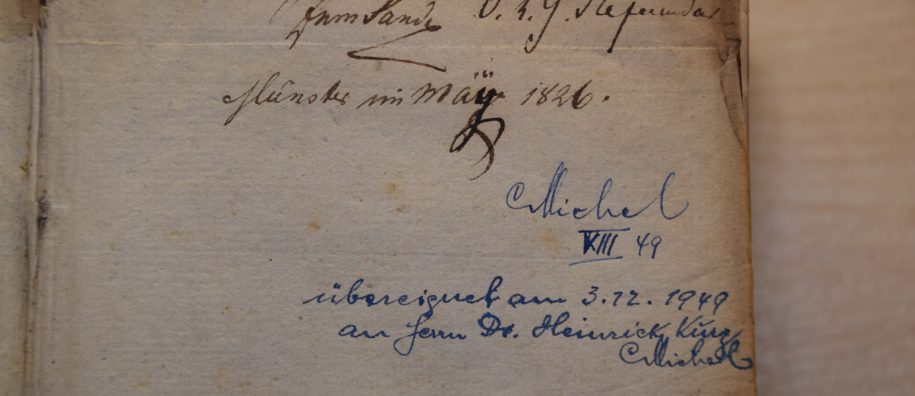 zum Sande O. L. G. Referendar
Münster im Maÿ 1826.
Michel
VIII 49
übereignet am 3.12.1949
an Herrn Dr. Heinrich Kurz
Michel